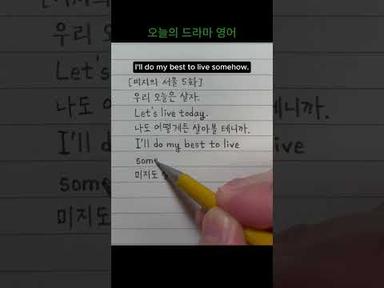 오늘의 드라마 영어
I'll do my best to live somehow.
[미지의 서울 5화]
우리 오늘은 살자.
Let's live today.
나도 어떻게든 살아볼 테니까.
I'll do my best to live
some
미지도